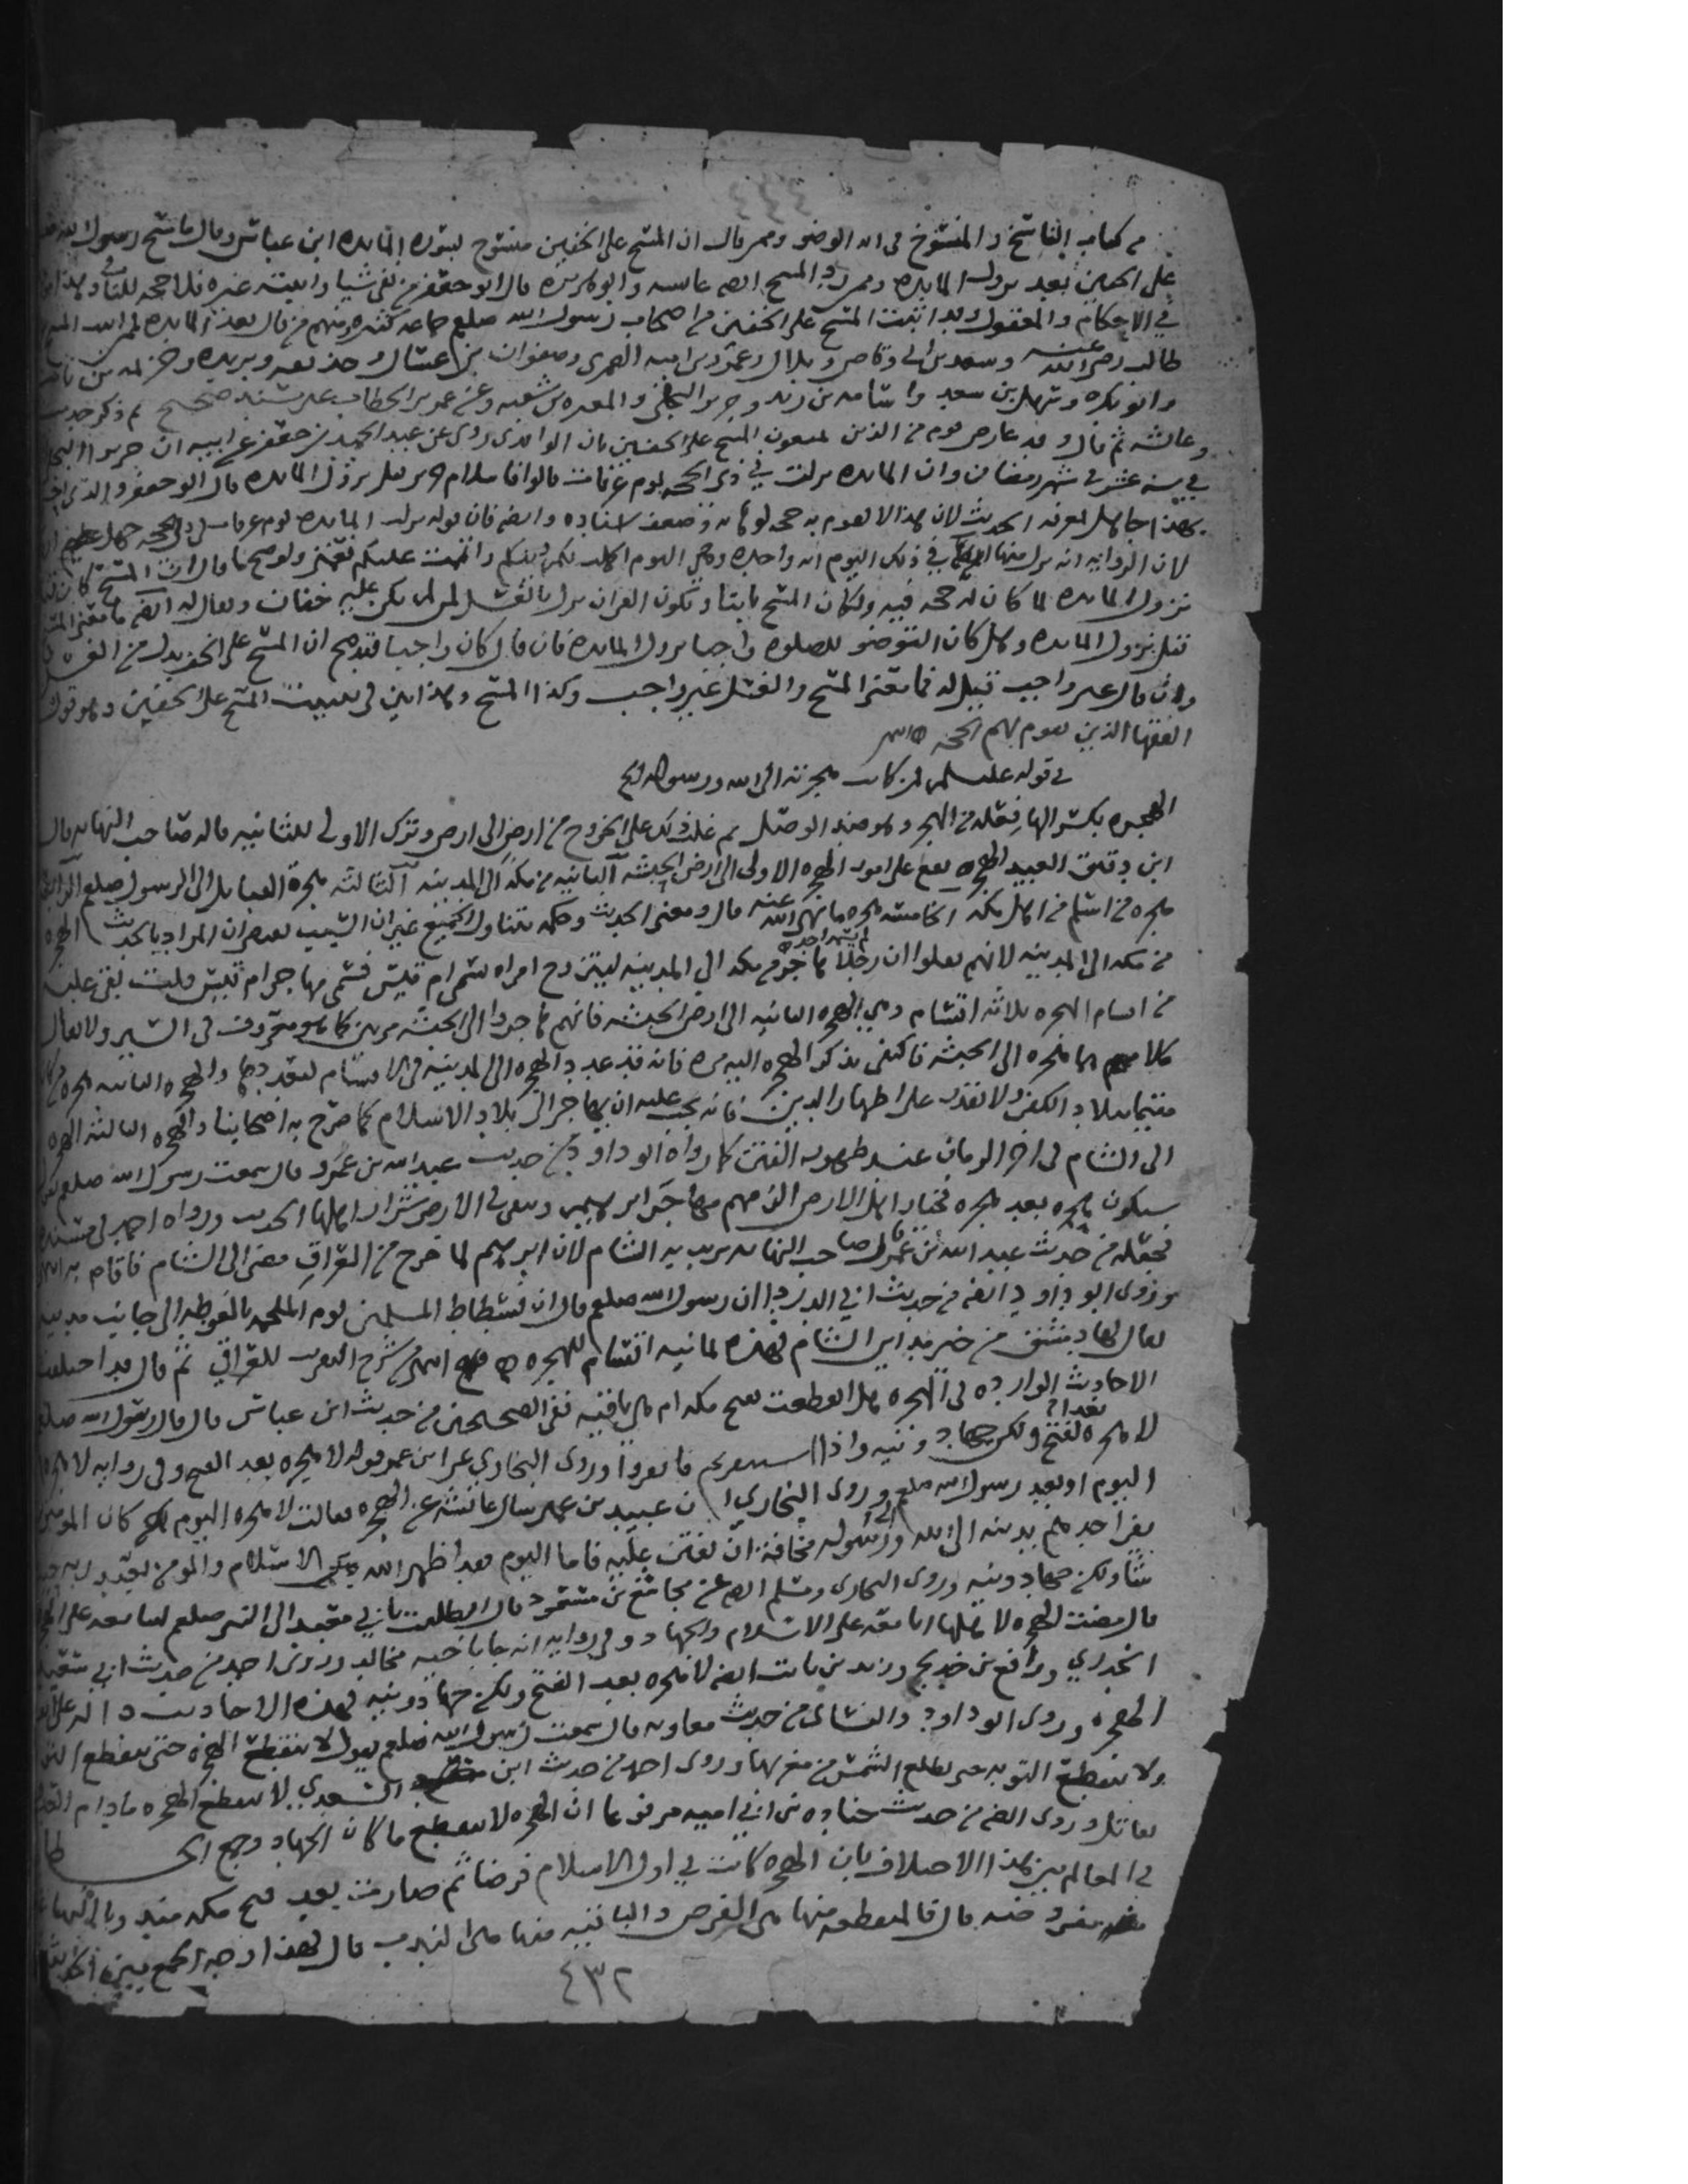 من كتاب الناسخ والمنسوخ في ايه الوضو وممن قال ان المسح على الخفين منسوخ بسوره المايده ابن عباس وقال ما مسح رسول الله
على الخفين بعد نزول المايده وممن رد المسح ايضا عايشه وابو هريره قال ابو جعفر من نفى شيا واثبته غيره فلا حجه للنافي وهذا
في الاحكام والمعقول وقد اثبت المسح على الخفين من اصحاب رسول الله صلعم جماعه كثيره ومنهم من قال بعد المايده
طالب رضي الله عنه وسعد بن ابي وقاص وبلال وعمرو بن اميه الضمري وصفوان بن عسال وحذيفه وبريده وخزيمه بن ثابت
وابو بكره وسهل بن سعد واسامه بن زيد وجرير البجلي والمغيره بن شعبه وعن عمر بن الخطاب مسند صحيح ثم ذكر حديث
وعايشه ثم قال وقد عارض قوم من الذين يمنعون المسح على الخفين بان الواقدي روى عن عبد الحميد بن جعفر عن ابيه ان جريرا البجلي
في سنه عشر في شهر رمضان وان المايده نزلت في ذي الحجه يوم عرفات قالوا فاسلام جرير قبل نزول المايده قال ابو جعفر والذي
بهذا جاهل بمعرفه الحديث لان هذا لا تقوم به حجه لوهايه وضعف اسناده وايضا فان قوله نزلت المايده يوم عرفات في ذي الحجه جهل
لان الروايه انه نزل منها في ذلك اليوم ايه واحده وهي اليوم اكملت لكم دينكم واتممت عليكم نعمتي ولو صح ما قال ان المسح كان قبل
نزول المايده لما كان له حجه فيه ولكان المسح ثابتا وتكون القران نزل بالغسل لمن لم يكن عليه خفان ويقال له ايضا ما معنى المسح
قبل نزول المايده وهل كان التوضو للصلوه واجبا نزول المايده فان قال كان واجبا فقد صح ان المسح على الخف بدل من الغسل
وان قال غير واجب قيل له فما معنى المسح والغسل غير واجب وكذا المسح وهذا بين في تثبيت المسح على الخفين وهو قول
الفقها الذين تقوم بهم الحجه انتهى
في قوله عليه السلام فمن كانت هجرته الى الله ورسوله الخ
الهجره بكسر الها فعله من الهجر وهو ضد الوصل ثم غلب ذلك على الخروج من ارض الى ارض وترك الاولى للثانيه قاله صاحب النهايه قال
ابن دقيق العيد الهجره تقع على امور الهجره الاولى الى ارض الحبشه الثانيه من مكه الى المدينه الثالثه هجرة القبايل الى الرسول صلعم الرابعه
هجره من اسلم من اهل مكه الخامسه هجره ما نهى الله عنه قال ومعنى الحديث وحكمه يتناول الجميع غير ان السبب يقتضي ان المراد بالحديث الهجره
من مكه الى المدينه لانهم نقلوا ان رجلا هاجر من مكه الى المدينه ليتزوج امراه تسمى ام قيس فسمي مهاجر ام قيس قلت بقي عليه
من اقسام الهجره ثلاثه اقسام وهي الهجره الثانيه الى ارض الحبشه فانهم هاجروا الى الحبشه مرتين كما هو معروف في السير ولا يقال
كلاهما هجره الى الحبشه فاكتفى بذكر الهجره اليه مره فانه قد عدد الهجره الى المدينه في الاقسام لتعددها والهجره الثانيه هجره من كان
مقيما ببلاد الكفر ولا يقدر على اظهار الدين فانه يجب عليه ان يهاجر الى بلاد الاسلام كما صرح به اصحابنا والهجره الثالثه الهجره
الى الشام في اخر الزمان عند ظهور الفتن كما رواه ابو داود من حديث عبد الله بن عمرو قال سمعت رسول الله صلعم يقول
سيكون هجره بعد هجره فخيار اهل الارض الزمهم مهاجر ابراهيم ويبقى في الارض شرار اهلها الحديث ورواه احمد في مسنده
فجعله من حديث عبد الله بن عمر قال صاحب النهايه يريد به الشام لان ابراهيم لما خرج من العراق مضى الى الشام فاقام به
وروى ابو داود ايضا من حديث ابي الدرداء ان رسول الله صلعم قال ان فسطاط المسلمين يوم الملحمه بالغوطه الى جانب مدينه
يقال لها دمشق من خير مداين الشام فهذه ثمانيه اقسام للهجره انتهى من شرح التقريب للعراقي ثم قال قد اختلفت
الاحاديث الوارده في الهجره هل انقطعت بفتح مكه ام هي باقيه ففي الصحيحين من حديث ابن عباس قال قال رسول الله صلعم
لا هجره بعد الفتح ولكن جهاد ونيه واذا استنفرتم فانفروا وروى البخاري عن ابن عمر قوله لا هجره بعد الفتح وفي روايه لا هجره
اليوم او بعد رسول الله صلعم وروى البخاري ان عبيد بن عمير سال عائشه عن الهجره فقالت لا هجره اليوم كان المومن
يفر احدهم بدينه الى الله والى رسوله مخافة ان يفتن عليه فاما اليوم فقد اظهر الله الاسلام والمومن يعبد ربه حيث
شا ولكن جهاد ونيه وروى البخاري ومسلم ايضا عن مجاشع بن مسعود قال انطلقت بابي معبد الى النبي صلعم ليبايعه على الهجره
قال مضت الهجره لاهلها ابايعه على الاسلام والجهاد وفي روايه انه جا باخيه مجالد وروى احمد من حديث ابي سعيد
الخدري ورافع بن خديج وزيد بن ثابت ايضا لا هجره بعد الفتح ولكن جهاد ونيه فهذه الاحاديث داله على
الهجره وروى ابو داود والنسائي من حديث معاويه قال سمعت رسول الله صلعم يقول لا تنقطع الهجره حتى تنقطع التوبه
ولا تنقطع التوبه حتى تطلع الشمس من مغربها وروى احمد من حديث ابن السعدي لا تنقطع الهجره مادام العدو
يقاتل وروى ايضا من حديث جناده بن ابي اميه مرفوعا ان الهجره لا تنقطع ما كان الجهاد وجمع الخطابي
في المعالم بين هذا الاختلاف بان الهجره كانت في اول الاسلام فرضا ثم صارت بعد فتح مكه مندوبا اليها
غير مفروضه قال فالمنقطعه منها هي الفرض والباقيه منها هي الندب قال فهذا وجه الجمع بين الحديثين
٤٣٢